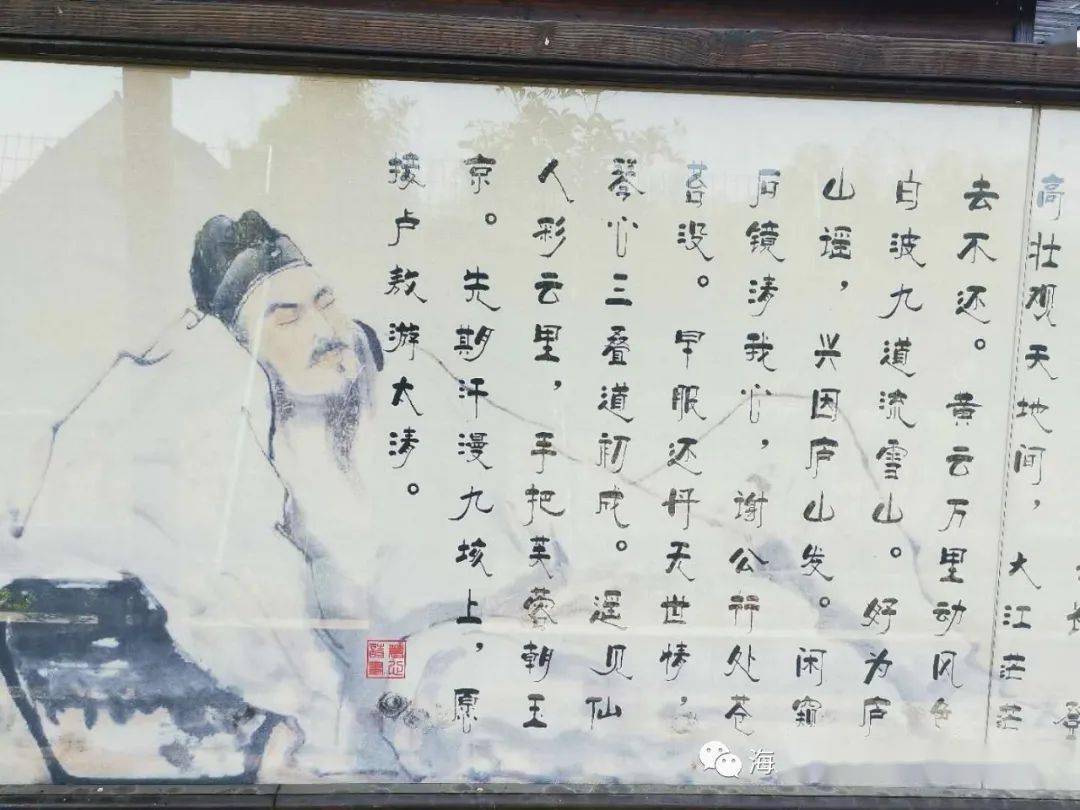 高壮观天地间，大江茫茫
去不还。黄云万里动风色
白波九道流雪山。好为庐
山谣，兴因庐山发。闲窥
石镜清我心，谢公行处苍
苔没。早服还丹无世情，
琴心三叠道初成。遥见仙
人彩云里，手把芙蓉朝玉
京。先期汗漫九垓上，愿
接卢敖游太清。
海